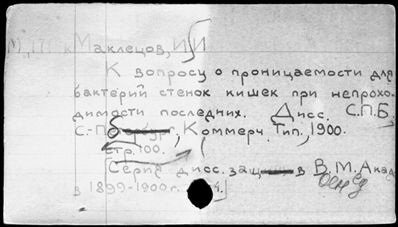 Маклецов, И.И
К вопросу о проницаемости для
бактерий стенок кишек при непрохо-
димости последних. Дисс. С.П.Б,
Коммерч. Тип., 1900.
стр. 100.
Серия дисс. защ в В.М. Акад
в 1899-1900 г.